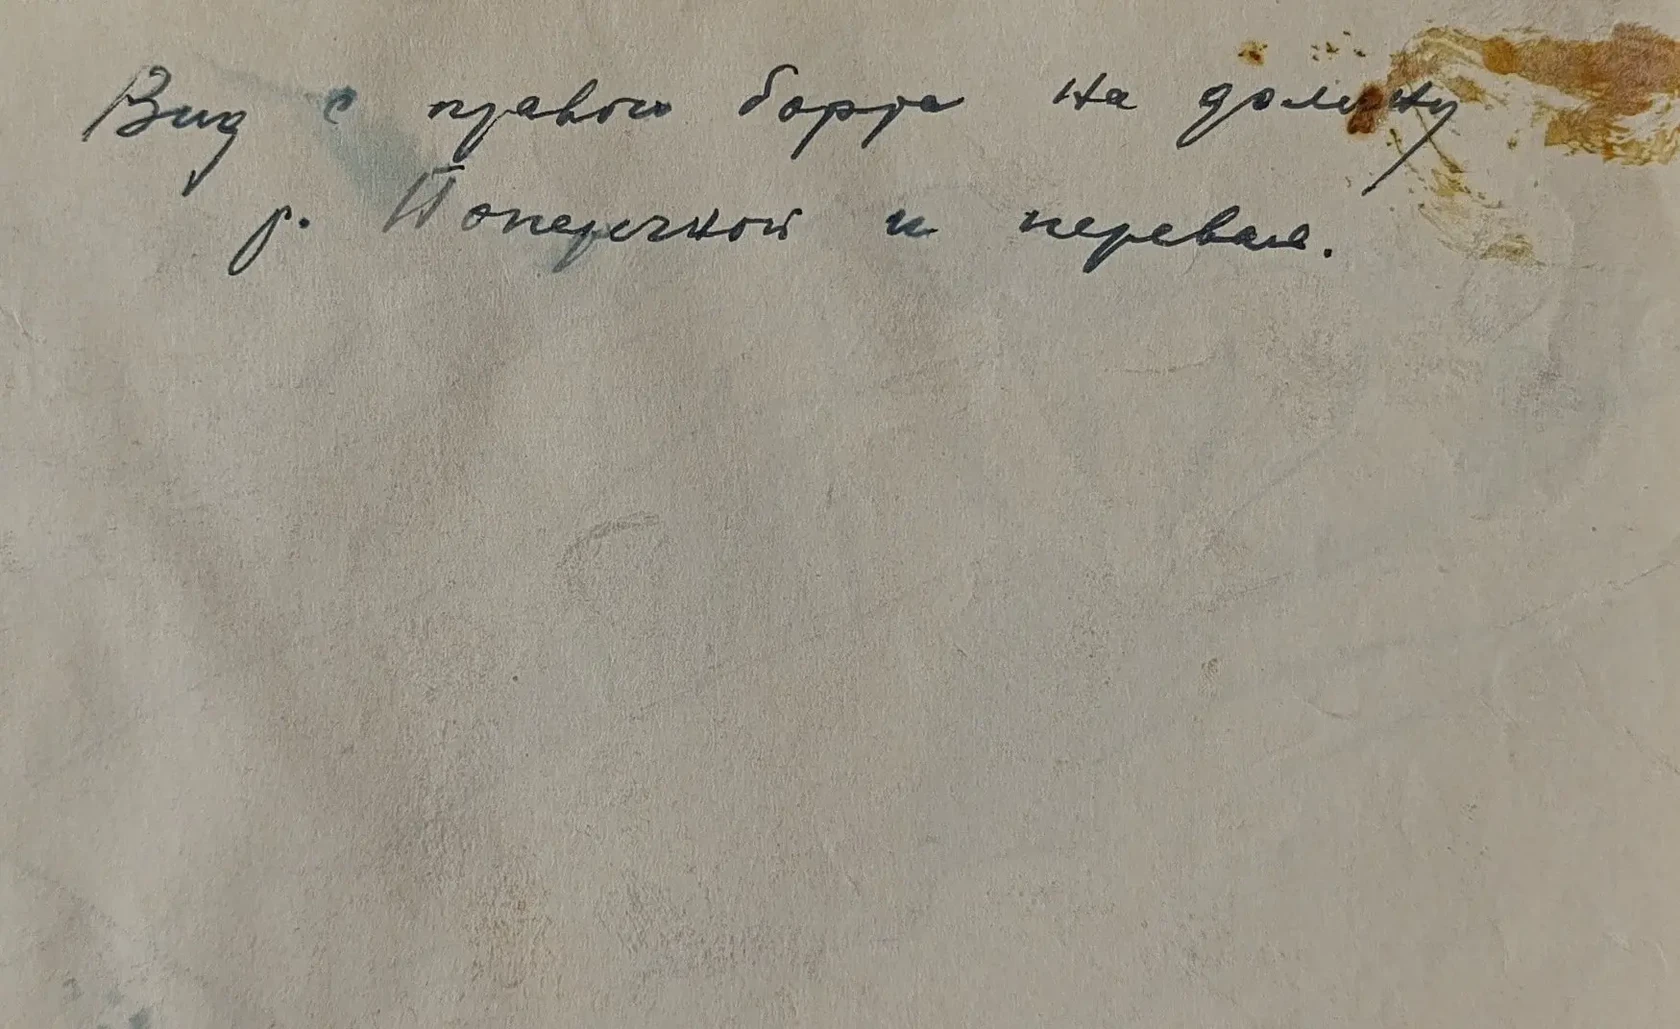 Вид с правого борта на долину
р. Поперечной и перевал.